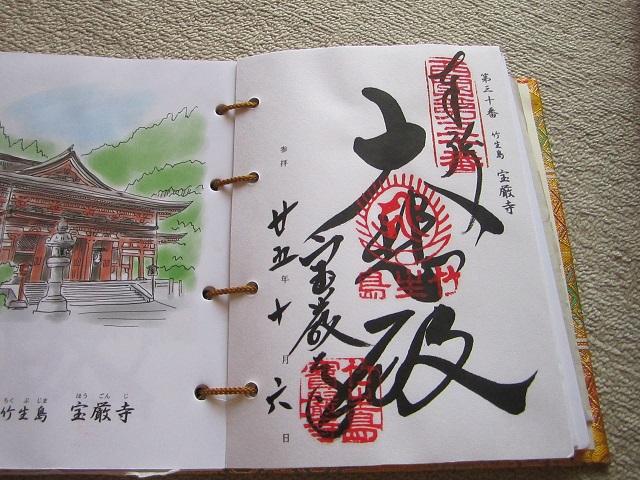 第三十番 竹生島 宝厳寺
奉拝
大悲殿
宝厳寺
参拝
廿五年十月六日
竹生島
ちくぶじま ほうごんじ
竹生島 宝厳寺